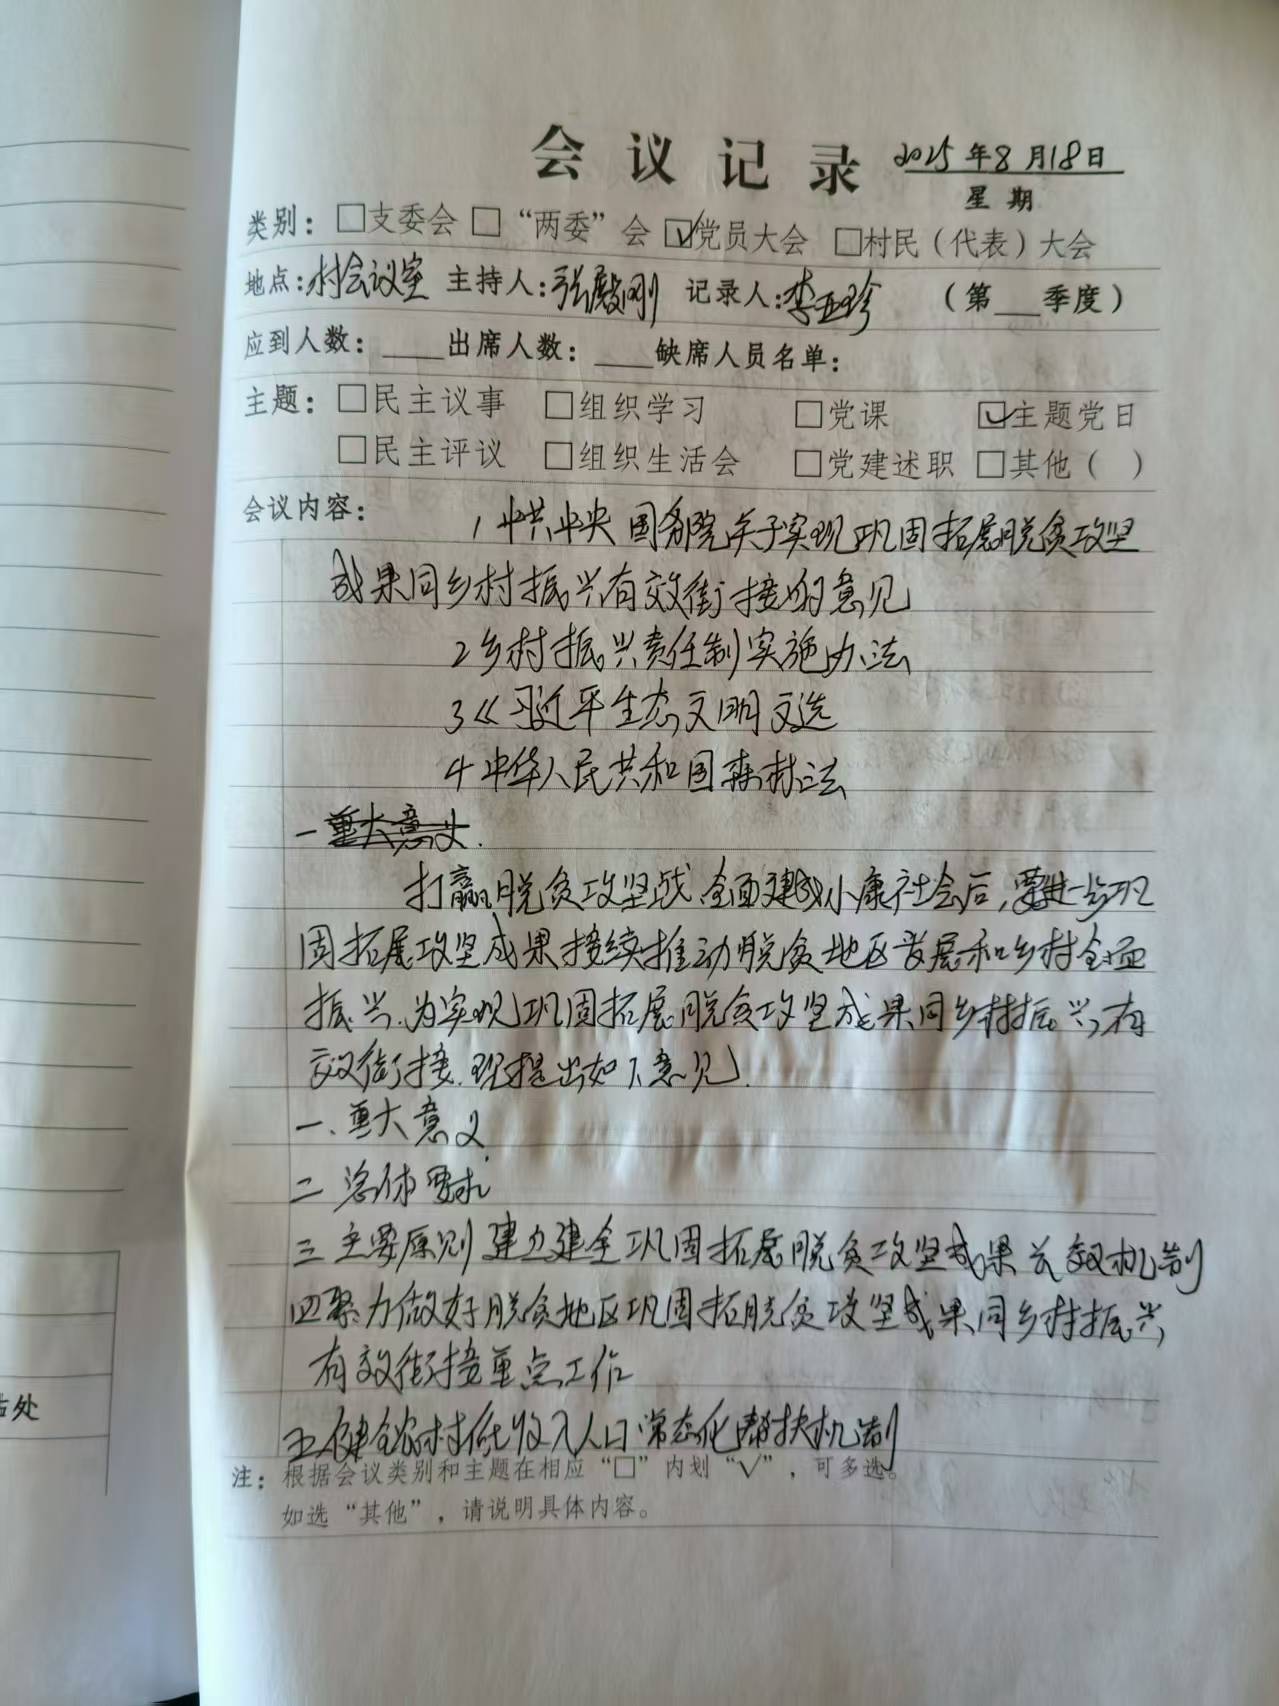 会议记录 2025年8月18日
星期
类别：□支委会 □“两委”会 ☑党员大会 □村民（代表）大会
地点：村会议室 主持人：张殿刚 记录人：李亚珍 （第___季度）
应到人数：____出席人数：____缺席人员名单：
主题：□民主议事 □组织学习 □党课 ☑主题党日
□民主评议 □组织生活会 □党建述职 □其他（ ）
会议内容： 1中共中央国务院关于实现巩固拓展脱贫攻坚
成果同乡村振兴有效衔接的意见
2乡村振兴责任制实施办法
3《习近平生态文明文选
4中华人民共和国森林法
一重大意义.
打赢脱贫攻坚战、全面建成小康社会后,要进一步巩
固拓展攻坚成果接续推动脱贫地区发展和乡村全面
振兴.为实现巩固拓展脱贫攻坚成果同乡村振兴有
效衔接.现提出如下意见.
一、重大意义
二 总体要求
三 主要原则 建立建全巩固拓展脱贫攻坚成果长效机制
四聚力做好脱贫地区巩固拓脱贫攻坚成果同乡村振兴
有效衔接重点工作
五健全农村低收入人口常态化帮扶机制
注：根据会议类别和主题在相应“□”内划“√”，可多选。
如选“其他”，请说明具体内容。
站处